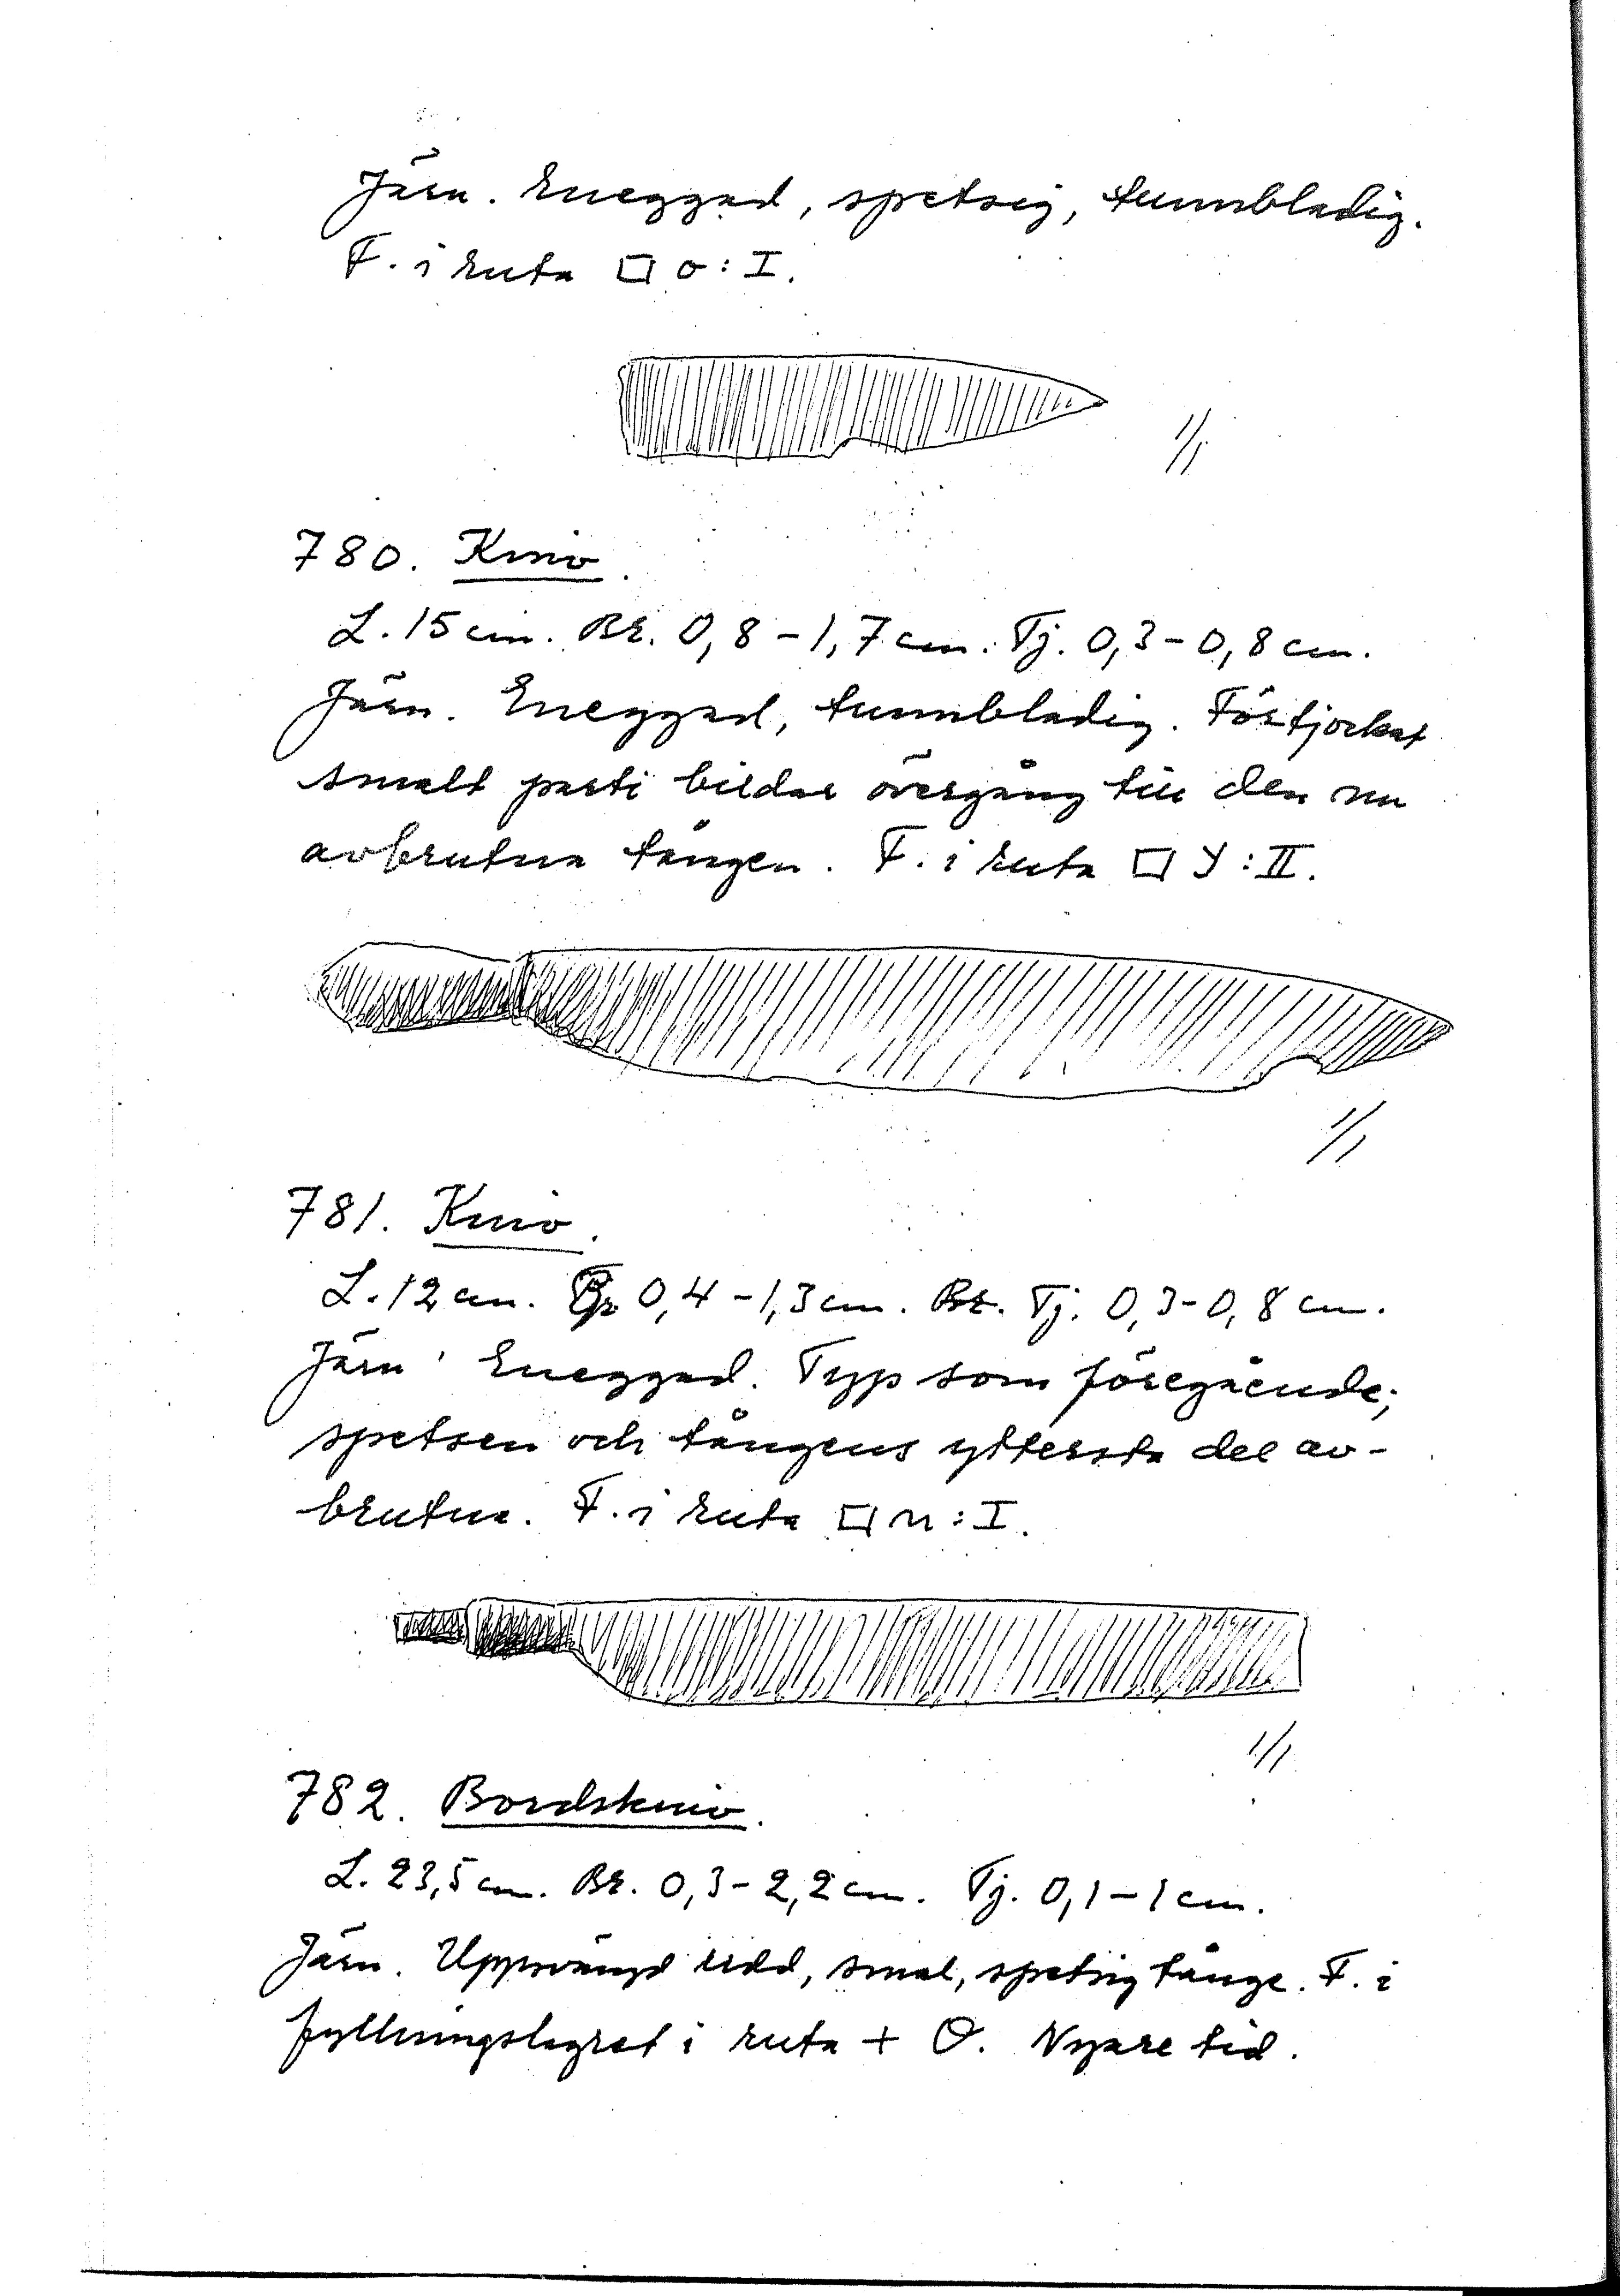 Järn. Eneggad, spetsig, tunnbladig.
F. i ruta □ o : I.
1/1
780. Kniv.
L. 15 cm. Br. 0,8 - 1,7 cm. Tj. 0,3 - 0,8 cm.
Järn. Eneggad, tunnbladig. Förtjockat
smalt parti bildar övergång till den nu
avbrutna tången. F. i ruta □ Y : II.
1/1
781. Kniv.
L. 12 cm. Br 0,4 - 1,3 cm. Br. Tj. 0,3 - 0,8 cm.
Järn. Eneggad. Typ som föregående;
spetsen och tångens yttersta del av-
brutna. F. i ruta □ n : I.
1/1
782. Bordskniv.
L. 23,5 cm. Br. 0,3 - 2,2 cm. Tj. 0,1 - 1 cm.
Järn. Uppsvängd udd, smal, spetsig tånge. F. i
fyllningslagret i ruta + O. Nyare tid.